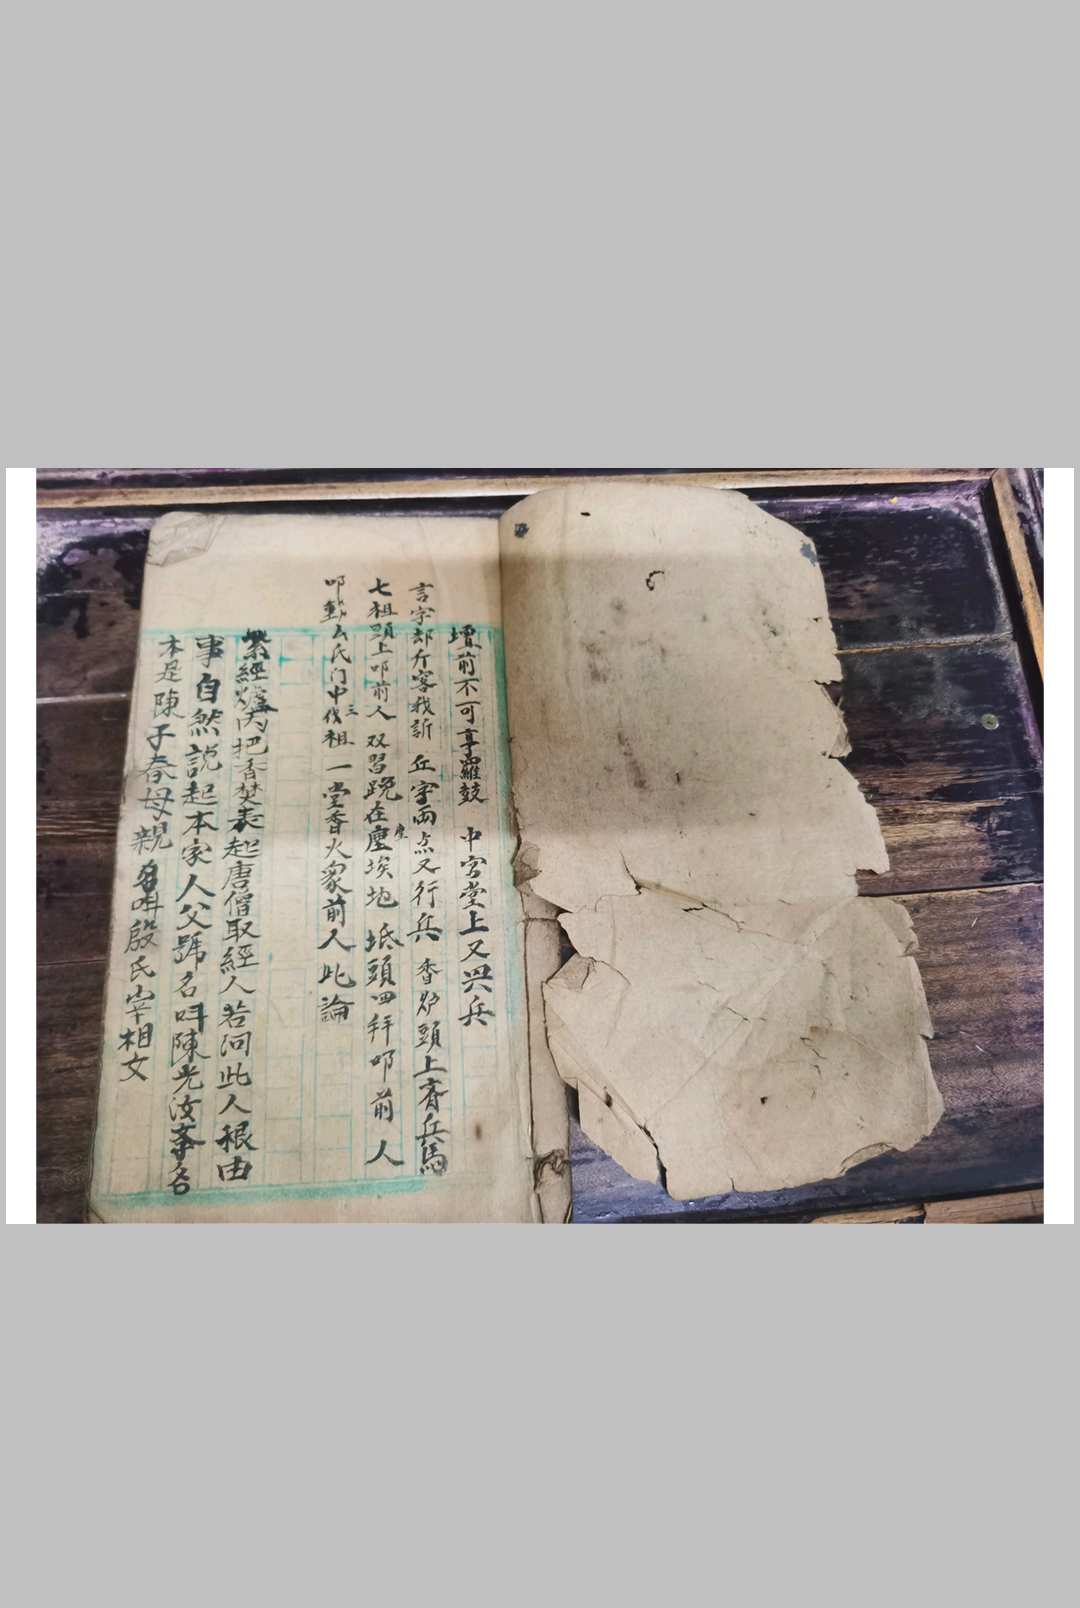 壇前不可享羅鼓 中宮堂上又兴兵
言字却斤客我訴 丘室両点又行兵 香炉頭上齊兵馬
七祖頭上叩前人 双習跪在塵埃地 坻頭四拜叩前人
叩動厶氏门中三代祖 一堂香火衆前人 此論
經爐内把香焚 表起唐僧取經人 若问此人根由
事自然説起 本家人父號名呌陳光汝 爹名
本是陳子春 母親名呌殷氏 宰相文